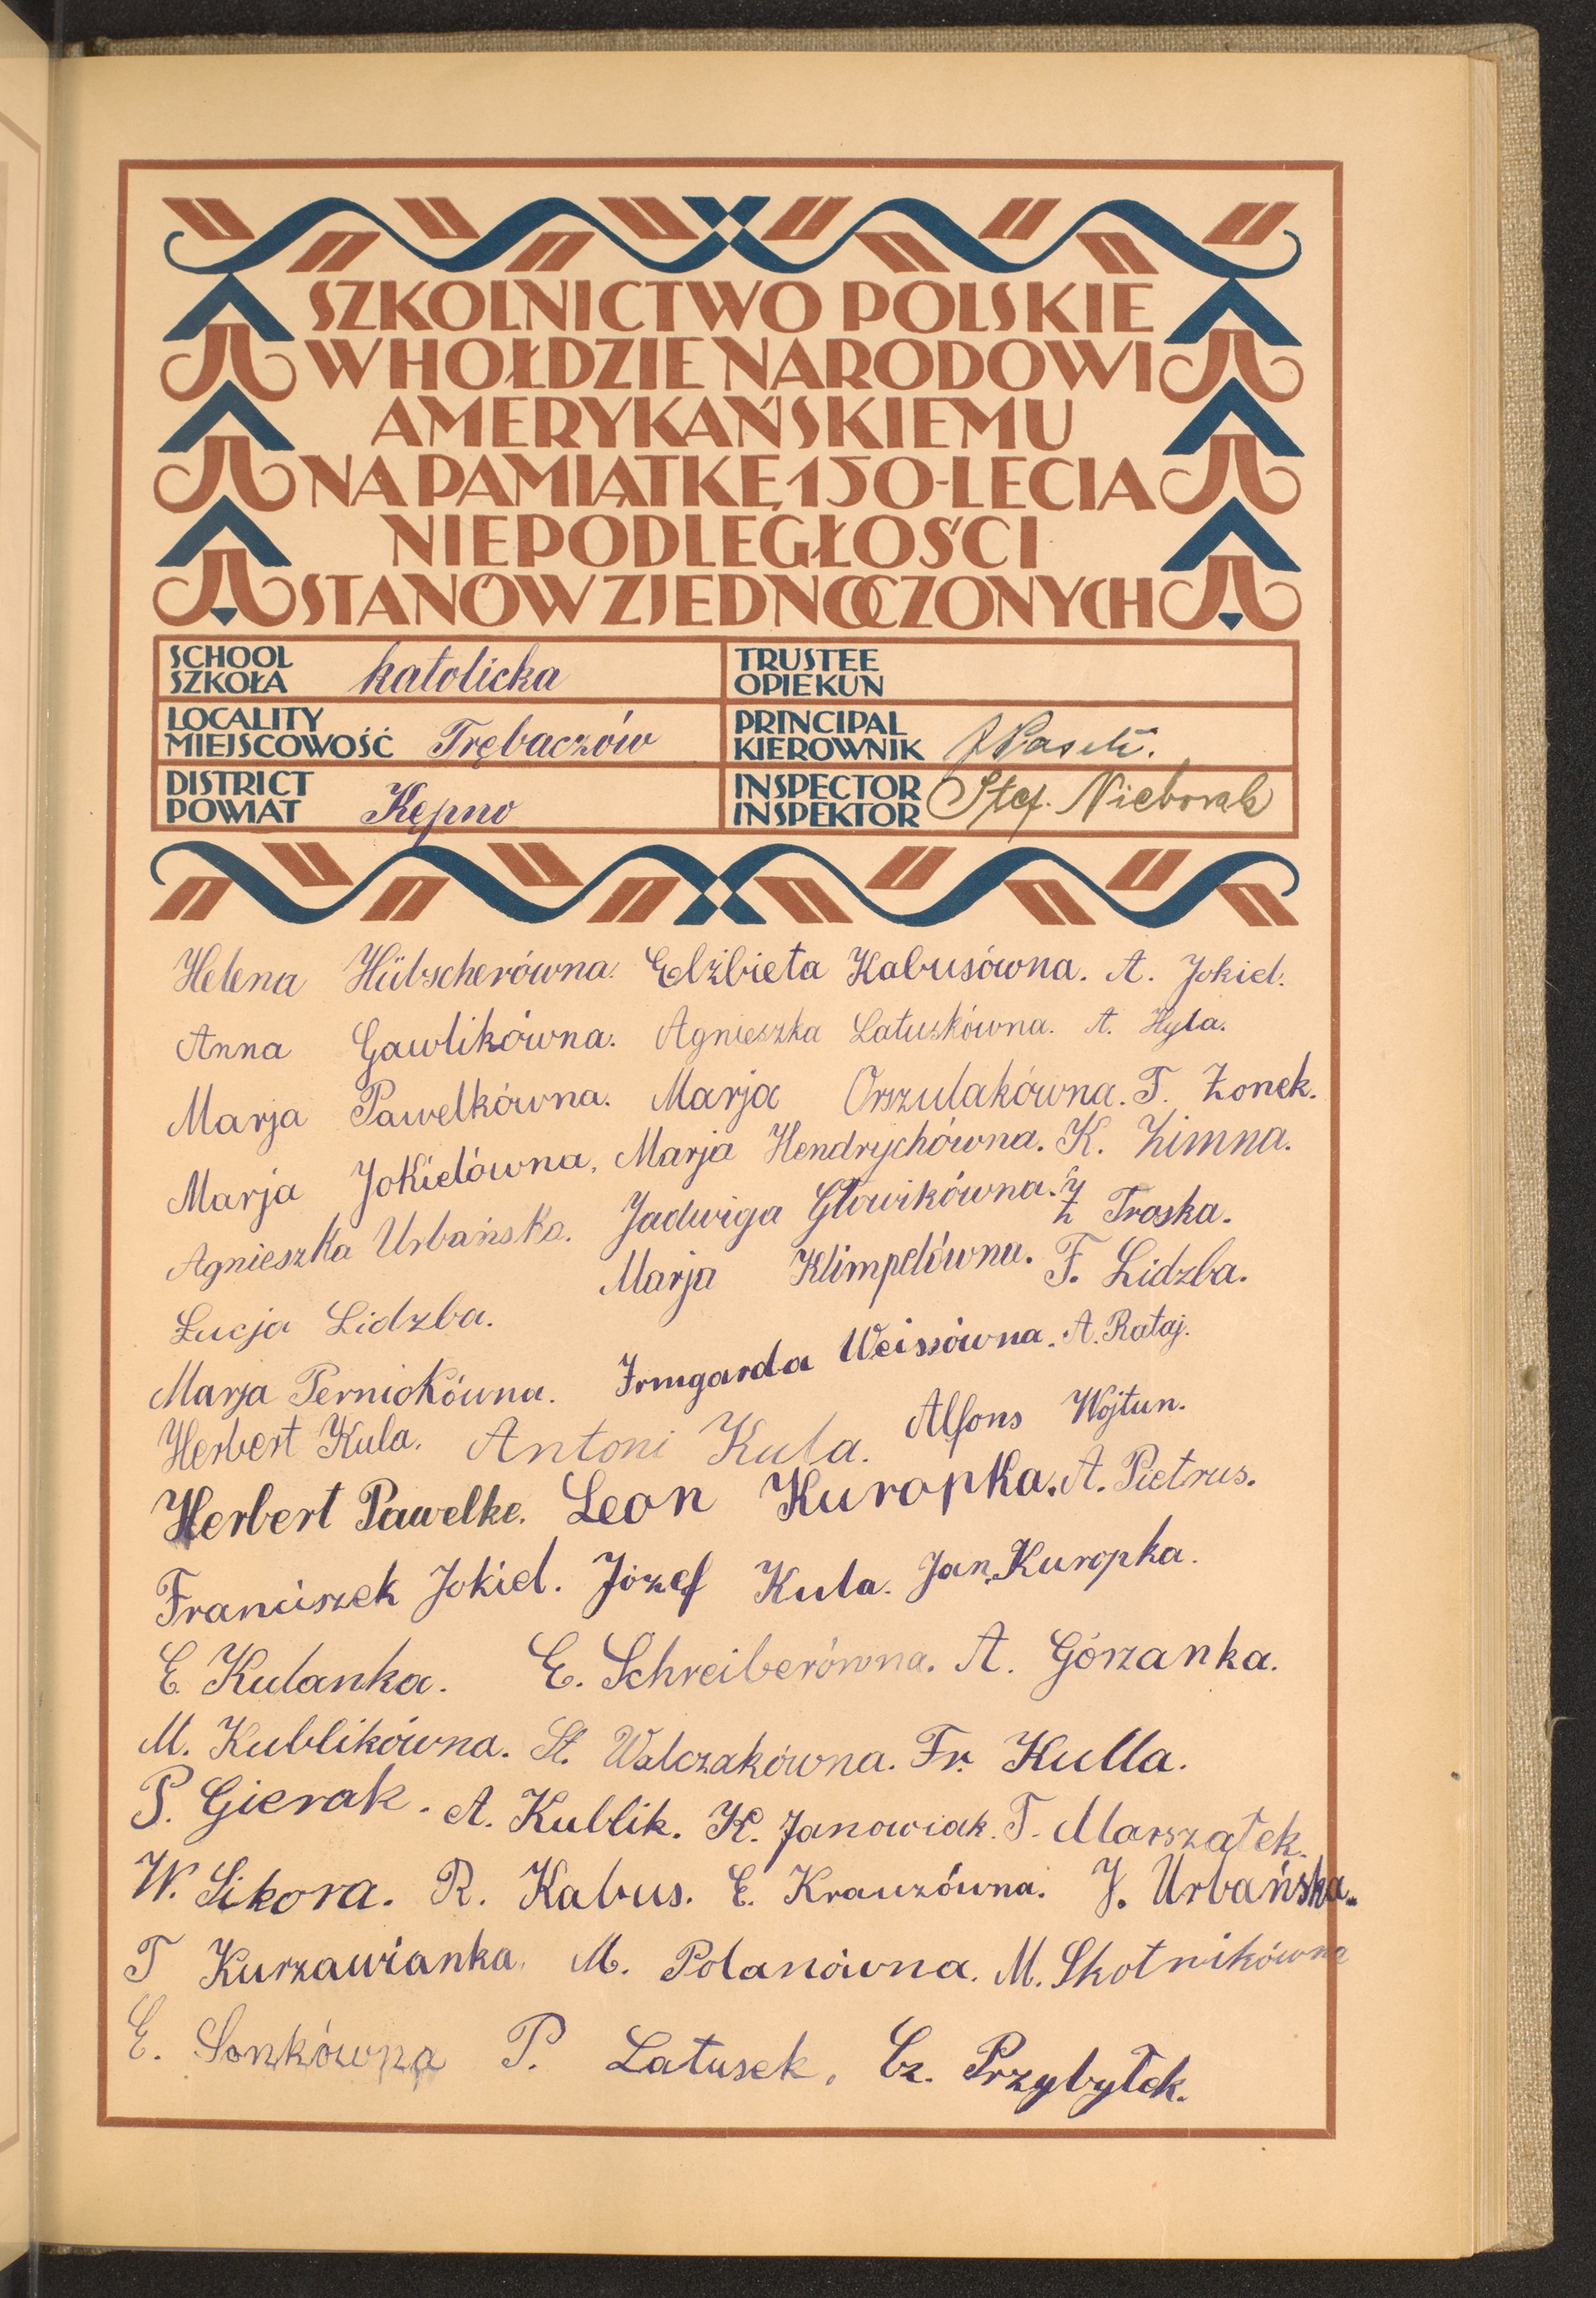 SZKOLNICTWO POLSKIE
W HOŁDZIE NARODOWI
AMERYKAŃSKIEMU
NA PAMIĄTKĘ 150-LECIA
NIEPODLEGŁOŚCI
STANÓW ZJEDNOCZONYCH
SCHOOL
SZKOŁA katolicka
TRUSTEE
OPIEKUN
LOCALITY
MIEJSCOWOŚĆ Trębaczów
PRINCIPAL
KIEROWNIK
DISTRICT
POWIAT Kępno
INSPECTOR
INSPEKTOR Stef. Nieborak
Helena Hübscherówna. Elżbieta Kabusówna. A. Jokiel.
Anna Gawlikówna. Agnieszka Latuskówna. A. Hyla.
Marja Pawelkówna. Marja Orszulakówna. T. Żonek.
Marja Jokielówna, Marja Hendrychówna. K. Zimna.
Agnieszka Urbańska. Jadwiga Głowikówna. Troska.
Łucja Lidzba. Marja Klimpelówna. F. Lidzba.
Marja Perniokówna. Irmgarda Weissówna. A. Rataj.
Herbert Kula. Antoni Kula. Alfons Wojtun.
Herbert Pawelke. Leon Kuropka. A. Pietrus.
Franciszek Jokiel. Józef Kula. Jan Kuropka.
E. Kulanka. E. Schreiberówna. A. Górzanka.
M. Kublikówna. St. Walczakówna. Fr. Kulla.
P. Gierak. A. Kublik. K. Janowiak. T. Marszałek.
W. Sikora. R. Kabus. E. Krauzówna. J. Urbańska.
T Kurzawianka. M. Polanówna. M. Skotnikówna
E. Sonkówna P. Latusek, Cz. Przybyłek.